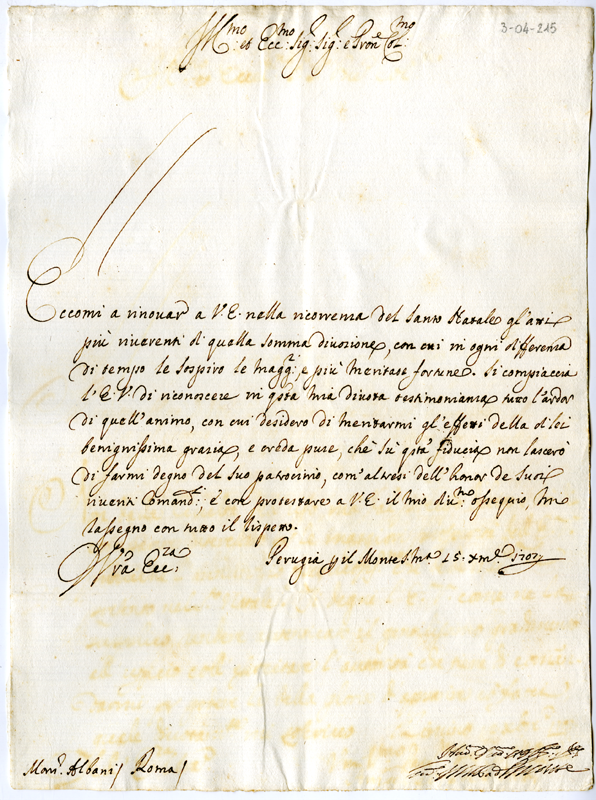 3-04-215
Ill.mo et Ecc.mo Sig.r Sig.r e Pron.e Col.mo
Eccomi a rinouar a V.E. nella ricorrenza del Santo Natale gl'atti
più riuerenti di quella somma diuozione, con cui in ogni differenza
di tempo le sospiro le magg.ri e più meritate fortune. Si compiaccia
l'E.V. di riconoscere in q.sta mia diuota testimonianza tutto l'ardor
di quell'animo, con cui desidero di meritarmi gl'effetti della di lei
benignissima grazia, e creda pure, che sù q.sta fiducia non lascerò
di farmi degno del suo patrocinio, com'altresì dell'honor de suoi
riueriti Comand.i, e con protestare a V.E. il mio diu.mo ossequio, mi
rassegno con tutto il rispetto.
V.ra Ecc.za
Perugia p il Monte 15. Xmb.e 1707
Mon.r Albani / Roma /